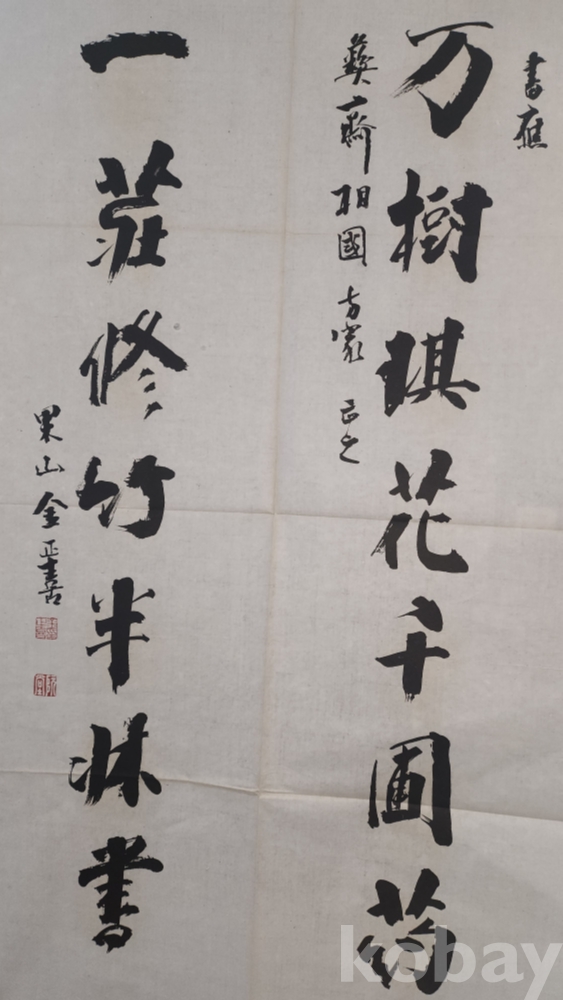 書應
万樹琪花千圃葯
彝齋相國方家正之
一莊修竹半牀書
果山金正喜
kobay